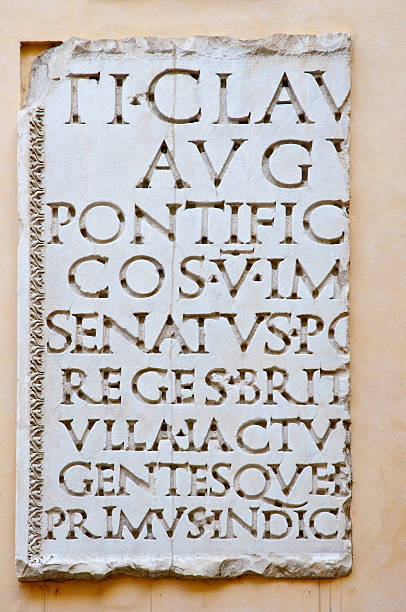 TI·CLAV
AVGV
PONTIFIC
COS·V·IM
SENATVS·PO
REGES·BRIT
VLLA·IACTV
GENTESQVE
PRIMVS·INDIC